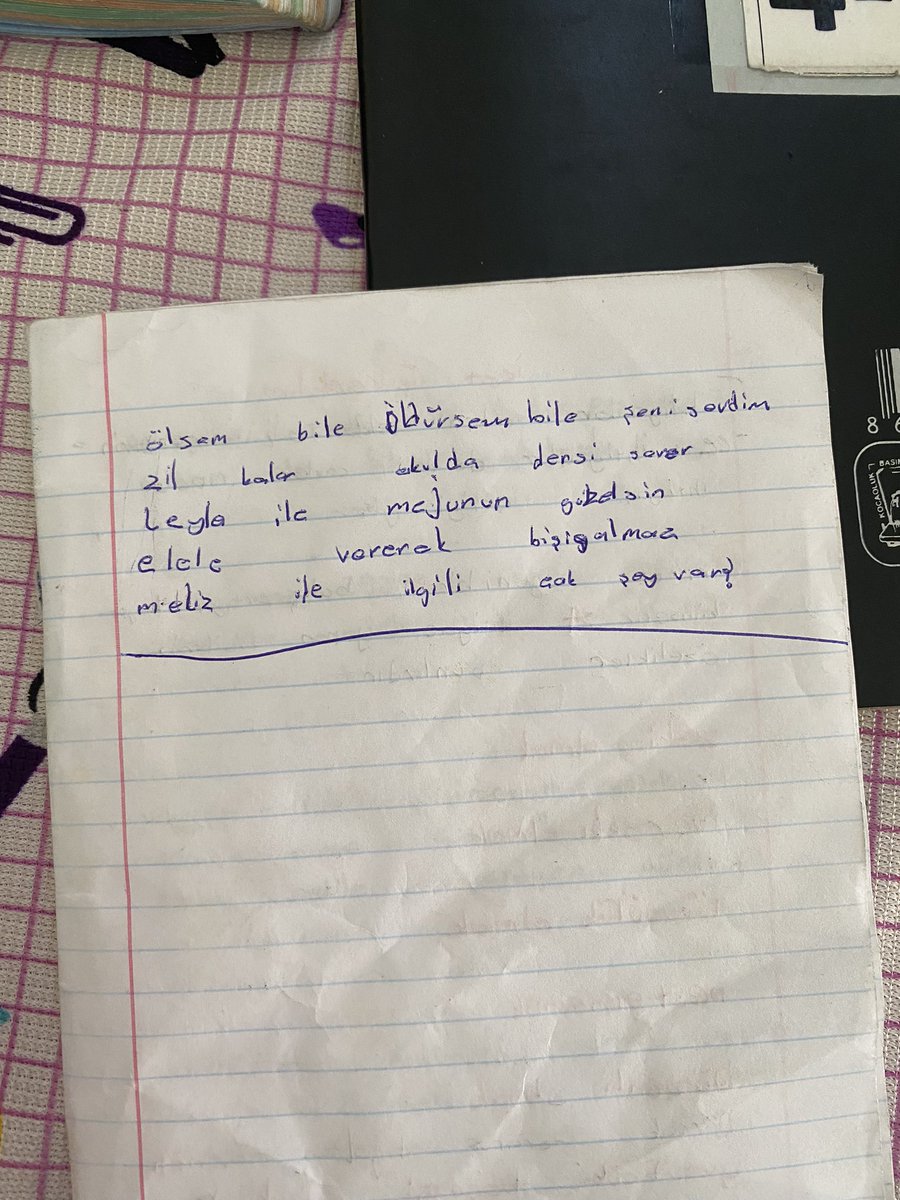 ölsem bile öldürsem bile şeni sevdim
zil kalar okulda dersi sever
Leyla ile mejunun güzelsin
elele vererek bişiyalmaz
meliz ile ilgili çok şey var?
8 6
KOCAOLUK
BASIM